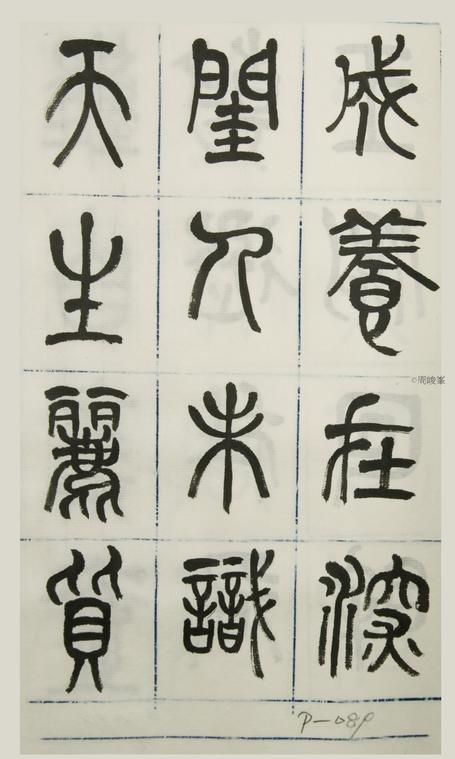 成養在深
閨人未識
天生麗質
©周峻峯
P-089